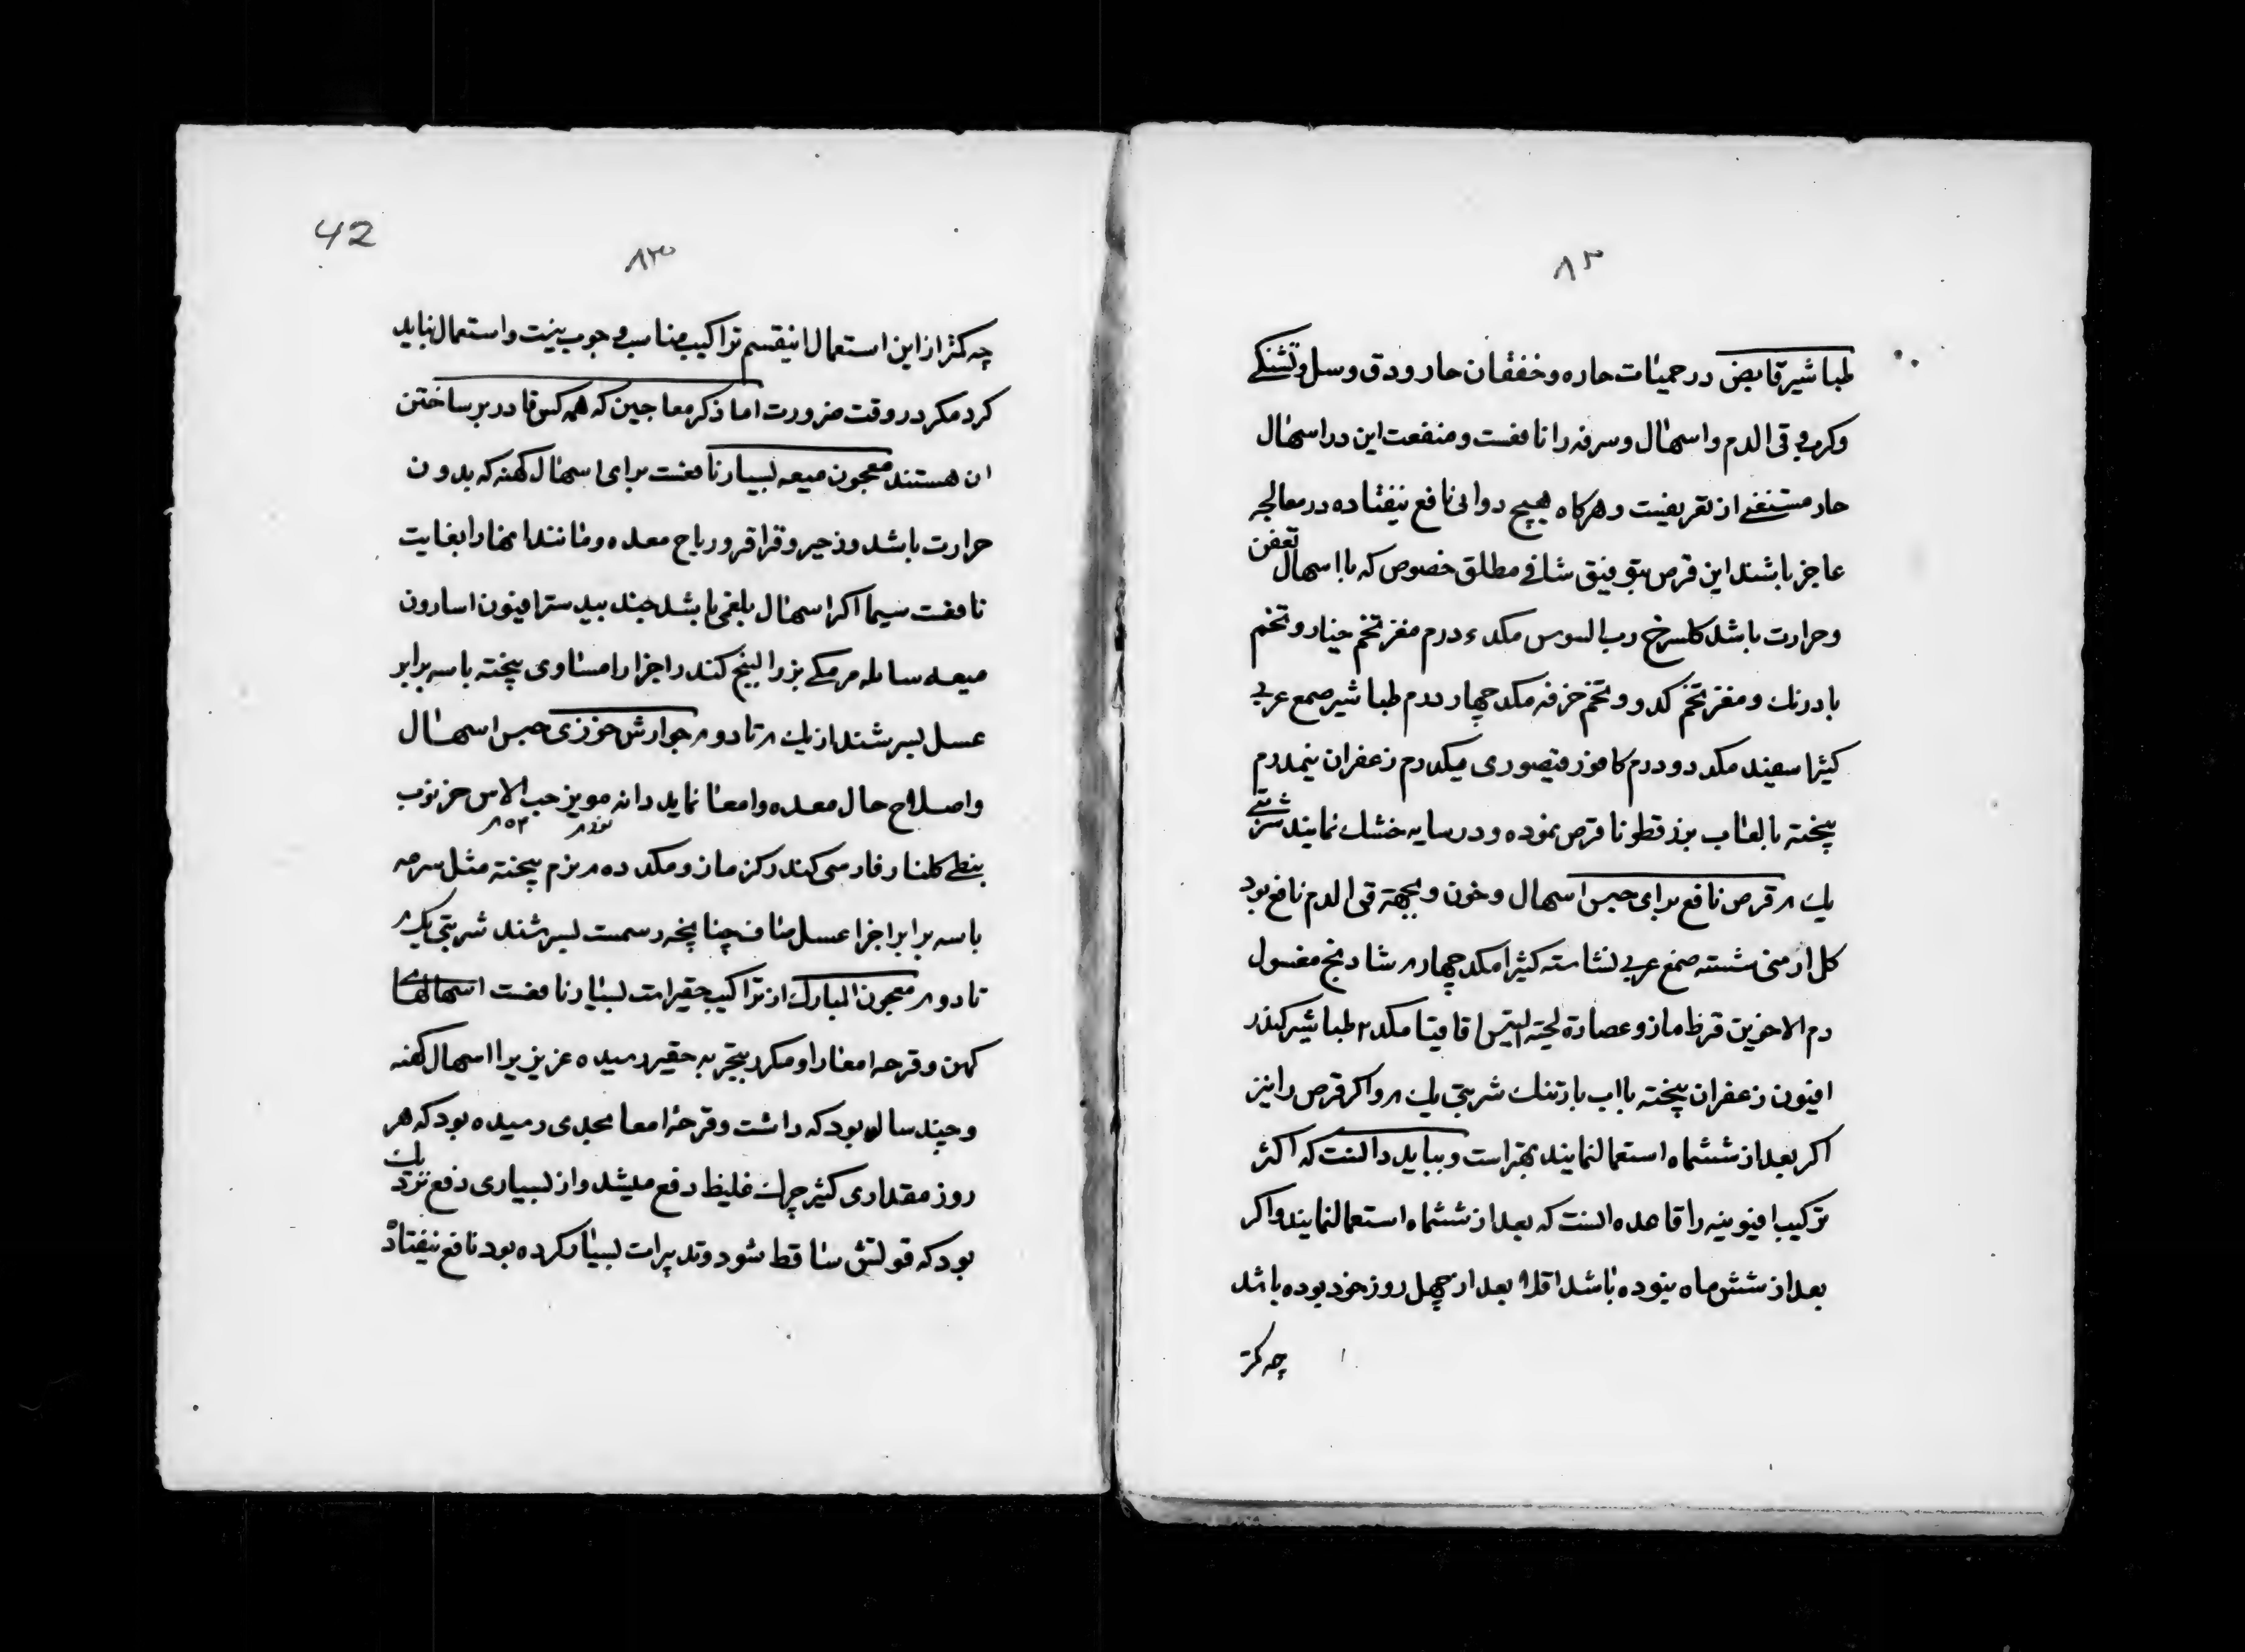 ۸۲
طباشیر قابض در حمیات حاره و خفقان حار و دق و سل و تشنکی
وکرب و قی الدم و اسهال و سرفه را نافعست و منفعت این در اسهال
حار مستغنی از تعریفست و هرکاه هیچ دوائی نافع نیفتاده در معالجه
عاجز باشند این قرص بتوفیق شافی مطلق خصوص که با اسهال تعفن
و حرارت باشد کلسرخ رب السوس مکد ء درم مغز تخم خیار و تخم
بادرنك و مغز تخم کدو و تخم خرفه مکد چهار درم طباشیر صمع عربی
کیثرا سفید مکد دو درم کافور قیصوری میکدرم زعفران نیمدرم
پیخته با لعاب بزرقطونا قرص نموده و در سایه خشك نمایند شربتی
یك م قرص نافع برای حبس اسهال و خون و بجهته قی الدم نافع بود
کل ارمنی شسته صمغ عربی نشاسته کثیرا مکد چهار م شادنج مغسول
دم الاخوین قرظ مازو عصارة لحیته التیس اقاقیا مکد ۲ طباشیر کندر
افیون زعفران پیخته با اب بارتنك شربتی یك م و اکر قرص را نیز
اکر بعد از ششماه استعمالنمایند بهتر است و بباید دانست که اکثر
ترکیب افیونیه را قاعده انست که بعد از ششماه استعمالنمایند و اکر
بعد از شش ماه نبوده باشد اقلا بعد از چهل روز خود بوده باشد
چه کمتر
42
۸۳
چه کمتر از این استعمال اینقسم تراکیب مناسب و جوب نیست و استعمال نباید
کرد مکر در وقت ضرورت اما ذکر معاجین که همه کس قادر بر ساختن
ان هستند معجون میعه بسیار نافعست برای اسهال کهنه که بدون
حرارت باشد و زحیر و قراقر و ریاح معده و مانند انها را بغایت
نافعست سیما اکر اسهال بلغمی باشد جند بیدستر افیون اسارون
میعه سایله مر مکی بزرالبنج کندر اجزا را مساوی پیخته با سه برابر
عسل بسرشند از یك م تا دو م جوارش خوزی حبس اسهال
و اصلاح حال معده و امعا نماید دانه مویز حب الاس خرنوب
بنطی کلنار فارسی کندر کزمازو مکد ده م نرم پیخته مثل سرمه
با سه برابر اجزا عسل صاف چنانچه رسمست بسرشند شربتی یك م
تا دو م معجون المبارك از تراکیب حقیر است بسیار نافعست اسهالهای
کهن و قرحه امعا را و مکرر بتجربه حقیر رسیده عزیزیرا اسهال کهنه
و چند ساله بود که داشت و قرحهٔ امعا بحدی رسیده بود که هر
روز مقداری کثیر چرك غلیظ دفع میشد و از بسیاری دفع نزدیك
بود که قوتش ساقط شود و تدبیرات بسیار کرده بود نافع نیفتاده